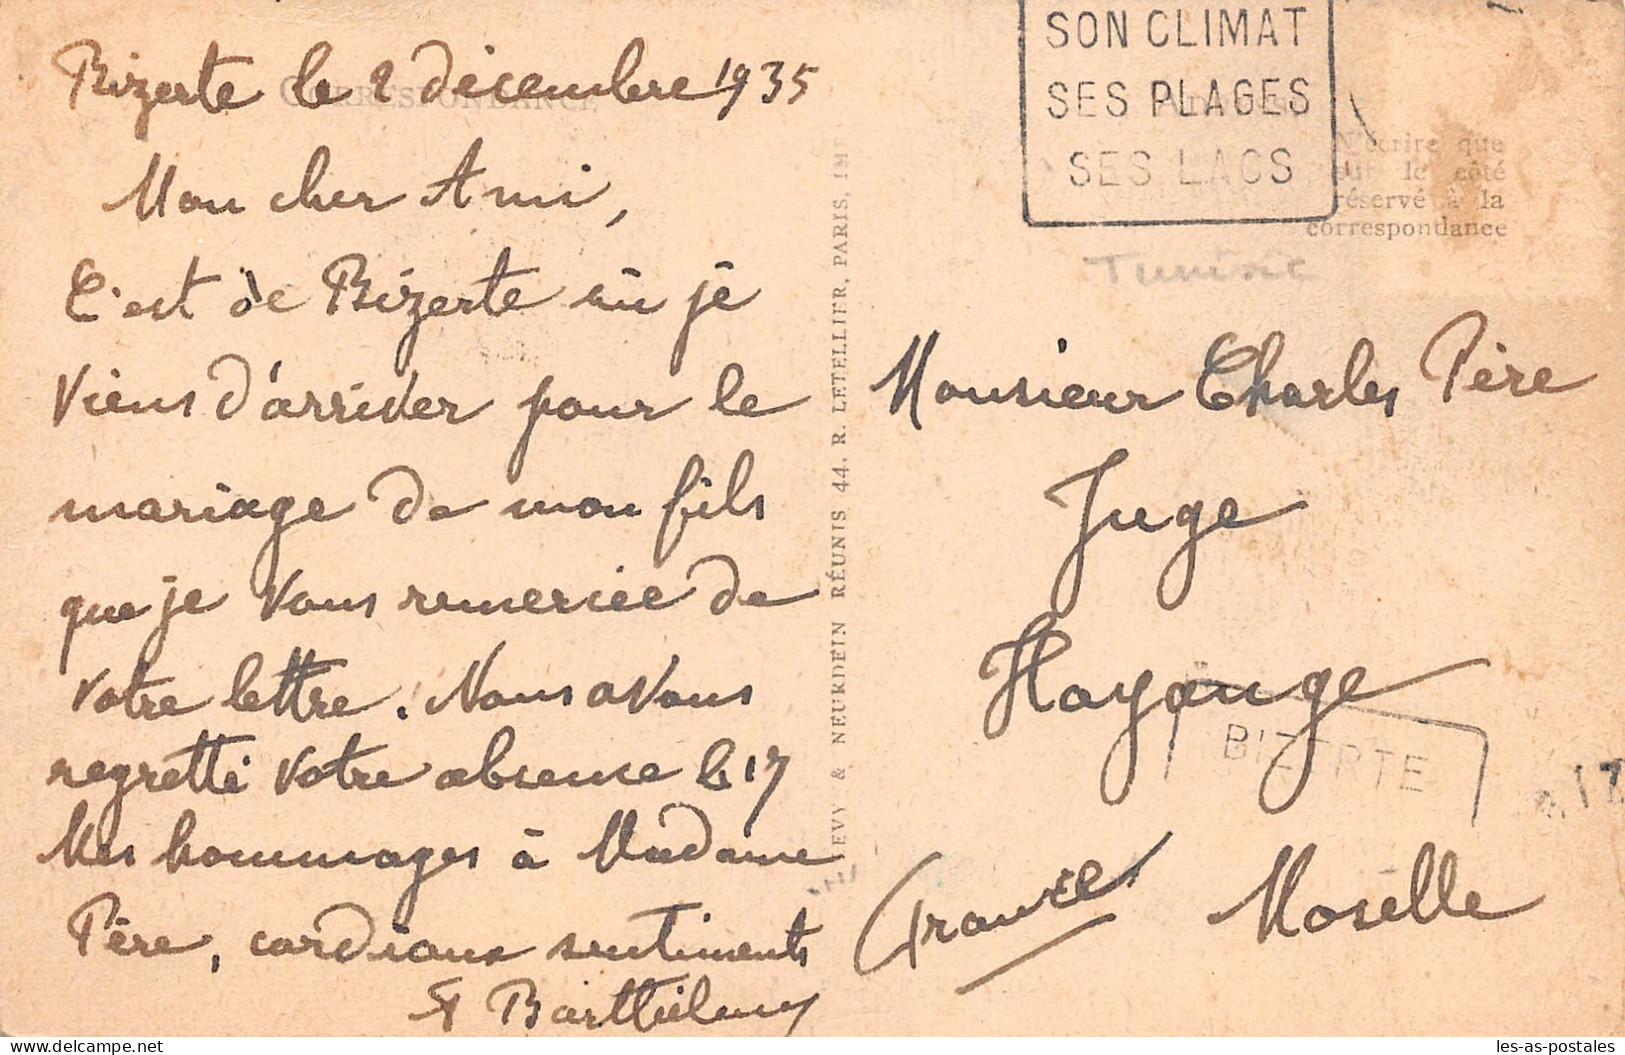 Bizerte le 2 décembre 1935
CORRESPONDANCE
Mon cher Ami,
C'est de Bizerte où je
viens d'arriver pour le
mariage de mon fils
que je vous remercie de
votre lettre. Nous avons
regretté votre absence le 17
Mes hommages à Madame
Père, cordiaux sentiments
Barthélemy
LEVY & NEURDEIN RÉUNIS 44, R. LETELLIER, PARIS, IMP
SON CLIMAT
SES PLAGES
SES LACS
N'écrire que
sur le côté
réservé à la
correspondance
Tunisie
Monsieur Charles Père
Juge
Hayange
BIZERTE
Moselle
(France)
delcampe.net
les-as-postales